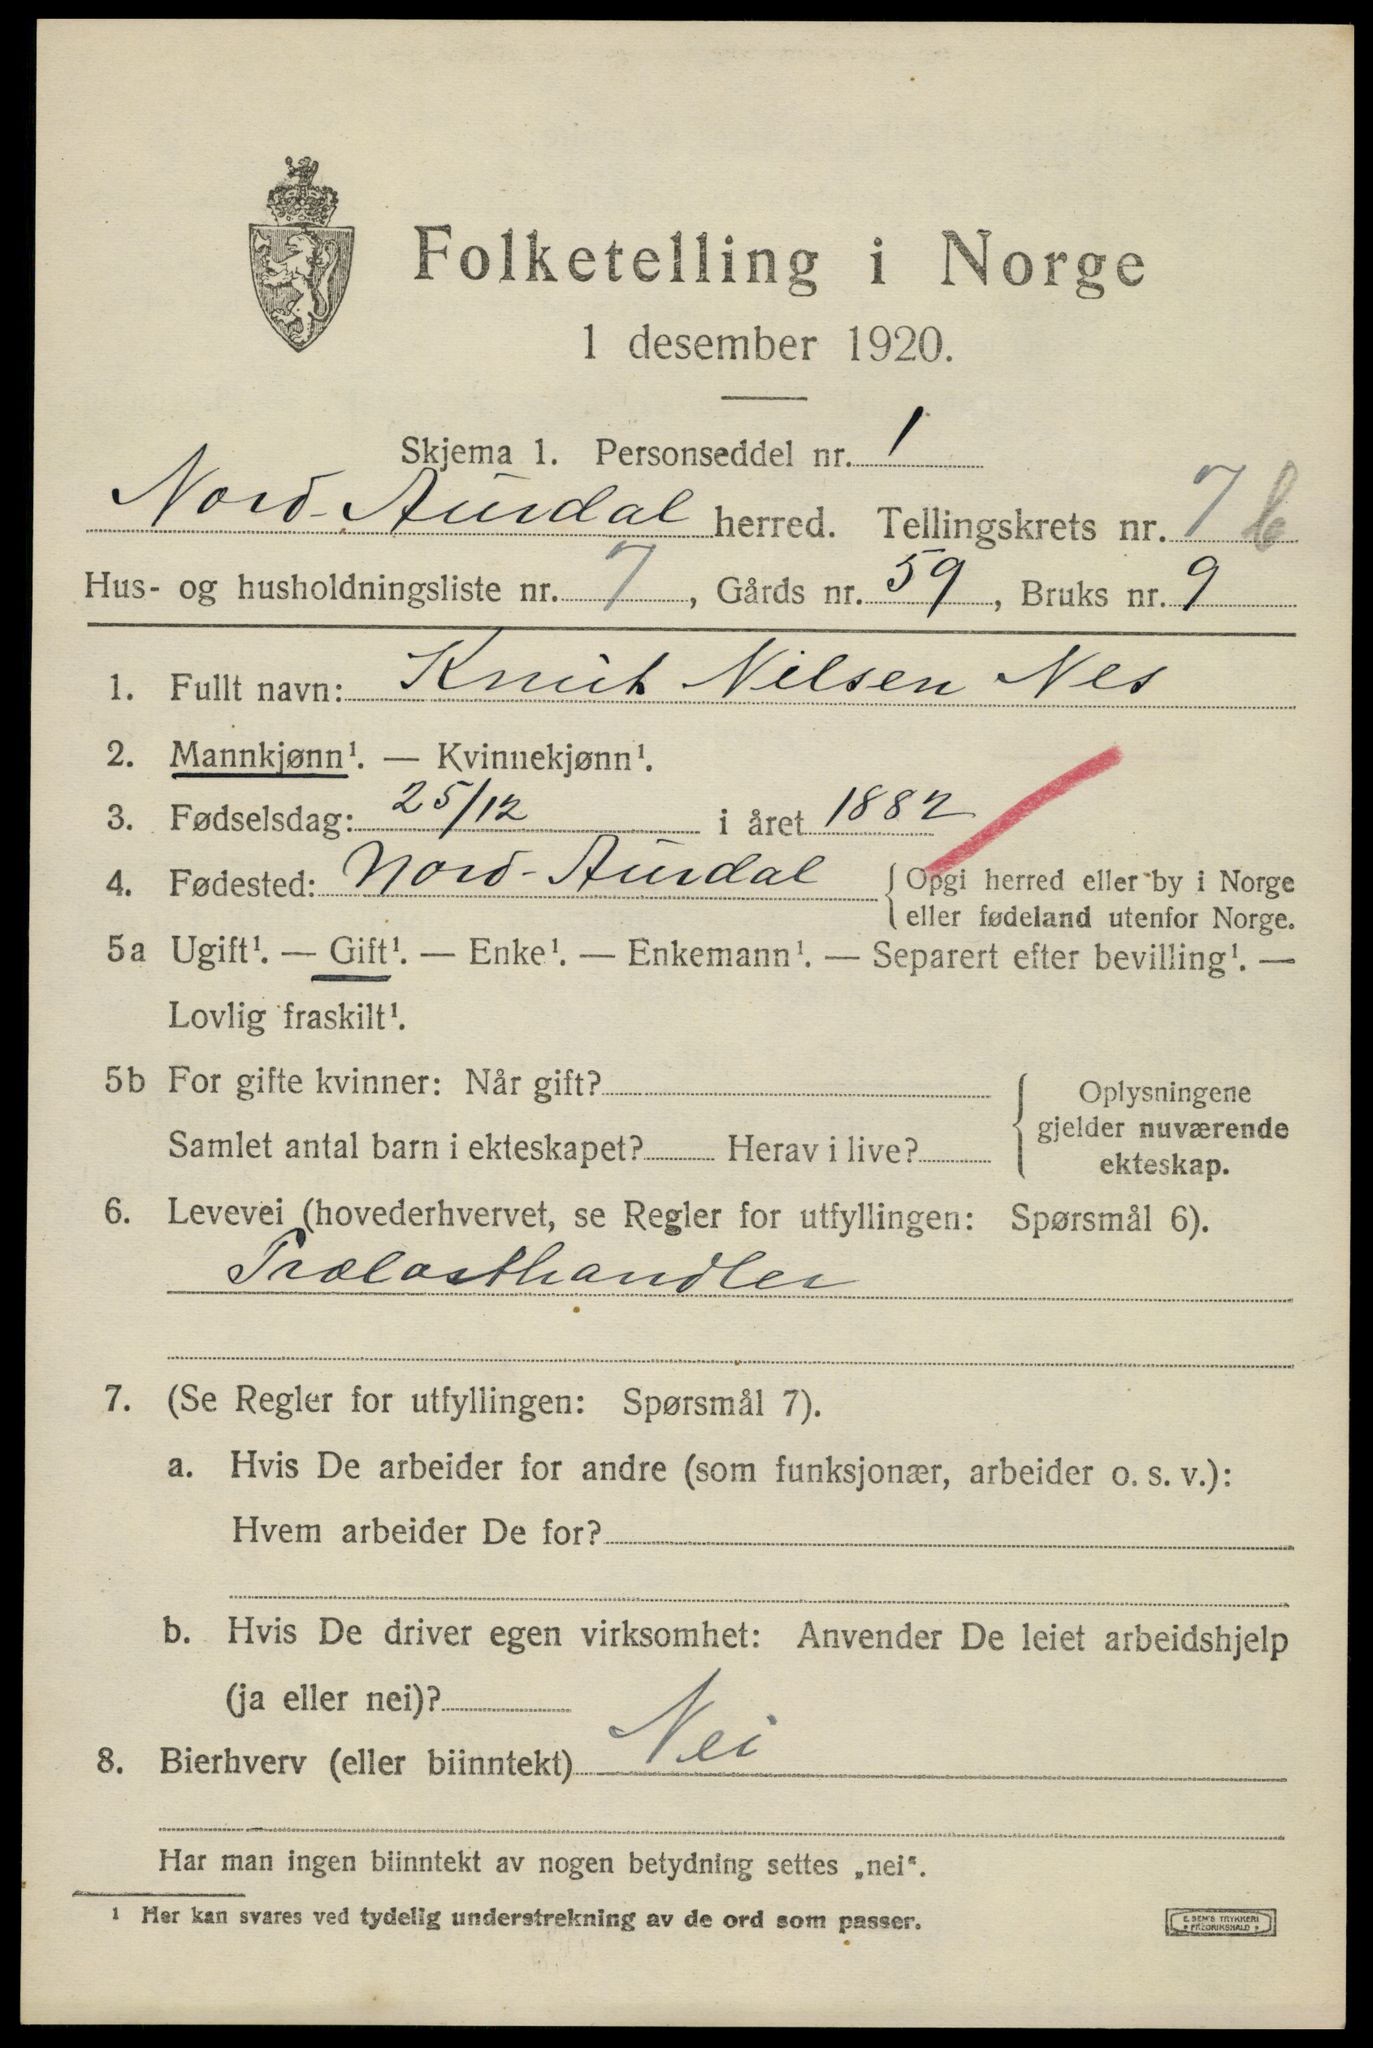 Folketelling i Norge
1 desember 1920.
Skjema 1. Personseddel nr. 1
Nord-Aurdal herred. Tellingskrets nr. 7 b
Hus- og husholdningsliste nr. 7, Gårds nr. 59, Bruks nr. 9
1. Fullt navn: Knut Nilsen Nes
2. Mannkjønn¹. — Kvinnekjønn¹.
3. Fødselsdag: 25/12 i året 1882
4. Fødested: Nord-Aurdal { Opgi herred eller by i Norge
eller fødeland utenfor Norge.
5a Ugift¹. — Gift¹. — Enke¹. — Enkemann¹. — Separert efter bevilling¹. —
Lovlig fraskilt¹.
5b For gifte kvinner: Når gift?
Samlet antal barn i ekteskapet? Herav i live?
Oplysningene
gjelder nuværende
ekteskap.
6. Levevei (hovederhvervet, se Regler for utfyllingen: Spørsmål 6).
Trælasthandler
7. (Se Regler for utfyllingen: Spørsmål 7).
a. Hvis De arbeider for andre (som funksjonær, arbeider o. s. v.):
Hvem arbeider De for?
b. Hvis De driver egen virksomhet: Anvender De leiet arbeidshjelp
(ja eller nei)?
8. Bierhverv (eller biinntekt) Nei
Har man ingen biinntekt av nogen betydning settes „nei“.
¹ Her kan svares ved tydelig understrekning av de ord som passer.
E. SEM'S TRYKKERI
FREDRIKSHALD